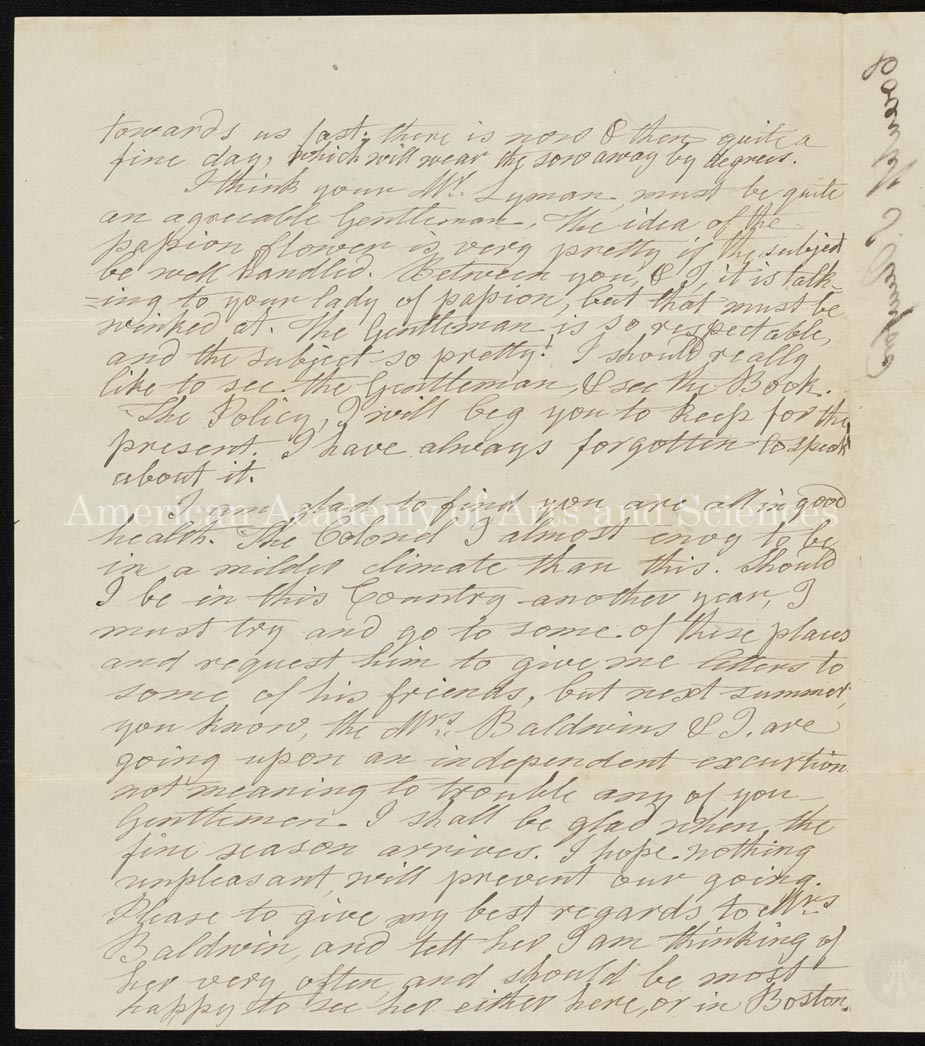 towards us fast; there is now & then quite a
fine day, which will wear the snow away by degrees.
I think your Mr. Lyman, must be quite
an agreeable Gentleman. The idea of the
passion flower is very pretty if the subject
be well handled. Between you, & I, it is talk=
=ing to your lady of passion, but that must be
winked at. The Gentleman is so respectable,
and the subject so pretty! I should really
like to see the Gentleman, & see the Book.
The Policy, I will beg you to keep for the
present. I have always forgotten to speak
about it.
I am glad to find you are all in good
health. The Colonel I almost envy to be
in a milder climate than this. Should
I be in this Country another year, I
must try and go to some of these places
and request him to give me letters to
some of his friends, but next summer,
you know, the Mrs. Baldwins & I. are
going upon an independent excurtion
not meaning to trouble any of you
Gentlemen. I shall be glad when the
fine season arrives. I hope nothing
unpleasant, will prevent our going.
Please to give my best regards to Mrs
Baldwin, and tell her I am thinking of
her very often, and should be most
happy to see her either here, or in Boston.
American Academy of Arts and Sciences